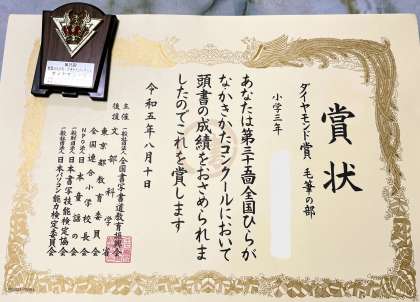 賞状
ダイヤモンド賞、毛筆の部
小学三年
あなたは第三十五回全国ひらが
なかきかたコンクールにおいて
頭書の成績をおさめられま
したのでこれを賞します
令和五年八月十日
主催 一般財団法人 全国書写書道教育振興会
後援 文部科学省
東京都教育委員会
全国連合小学校長会
NPO法人 日本童話の会
一般財団法人 日本書写技能検定協会
一般社団法人 日本パソコン能力検定委員会